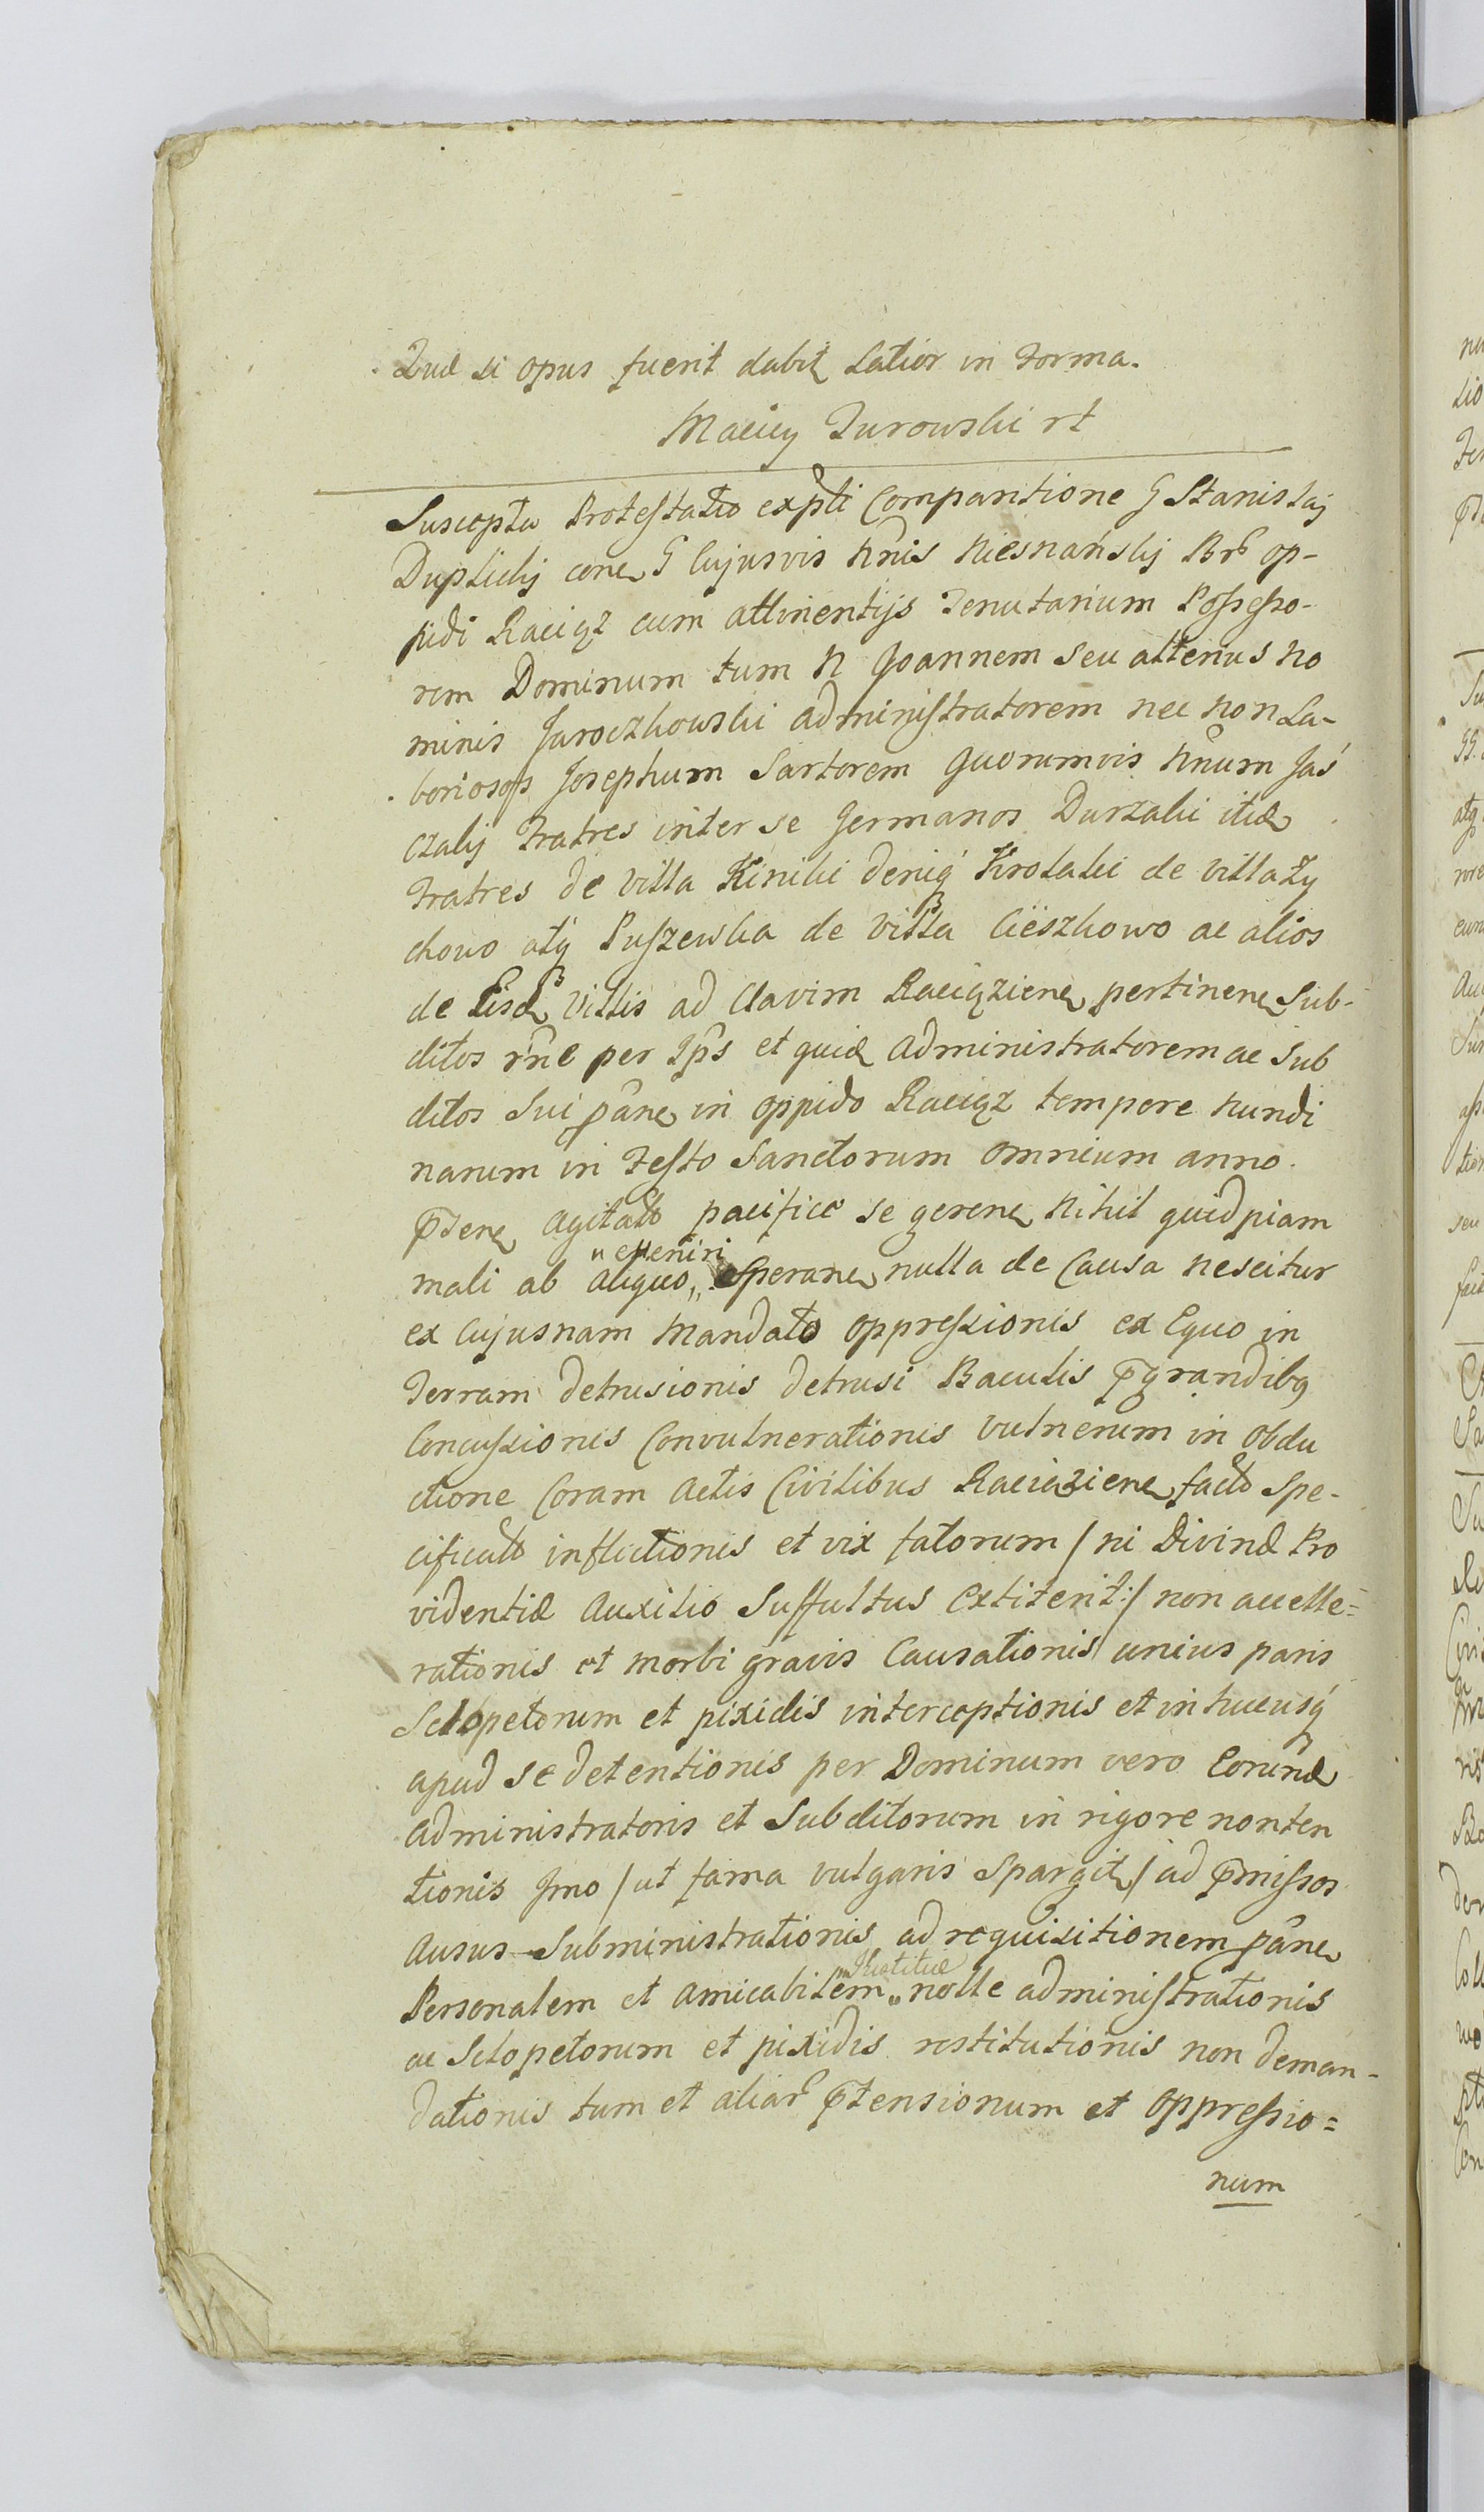 Quæ si opus fuerit dabit Latior in Forma.
Maciey Turowski rt
Suscepta Protestatio ex pti Comparitione G Stanislaj
Duplickj cone G Cujusvis Nnis Niesnańskj Brb op-
pidi Raciąz cum attinentijs Tenutarium Possesso-
rem Dominum tum N Joannem seu alterius No
minis Jaroczkowski administratorem nec non La-
boriosos Josephum Sartorem quorumvis Nnum Jaś
czakj Fratres inter se Germanos Durzaki itid
Fratres de Villa Kiniki deniq Krolaki de Villa Zy
chowo atq Puszewska de Villa Cieszkowo ac alios
de Eisd Villis ad Clavim Raciąziene pertinene Sub-
ditos rne per Ips et quid administratorem ac Sub
ditos Sui pane in oppido Raciąz tempore Nundi
narum in Festo Sanctorum omnium anno
ptene agitato pacifice se gerene Nihil quidpiam
mali ab aliquo,, Sperane nulla de Causa nescitur
" evenire
ex Cujusnam Mandato oppressionis ex Equo in
Terram detrusionis detrusi Baculis pgrandibq
Concussionis Convulnerationis Vulnerum in obdu
ctione Coram Actis Civilibus Raciąziene facto Spe-
cificato inflictionis et vix fatorum / ni Divinæ Pro
videntiæ Auxilio Suffultus extiterit:/ non accelle=
rationis et morbi gravis Causationis unius paris
Sclopetorum et pixidis interceptionis et in hucusq
apud se detentionis per Dominum vero Eorund
administratoris et Subditorum in rigore nonten
tionis Imo / ut fama vulgaris Spargit / ad pmissos
ausus Subministrationis ad requisitionem pane
Personalem et amicabilem " nolle administrationis
" Justitiæ
ac Sclopetorum et pixidis restitutionis non deman-
dationis tum et aliar ptensionum et oppressio=
num